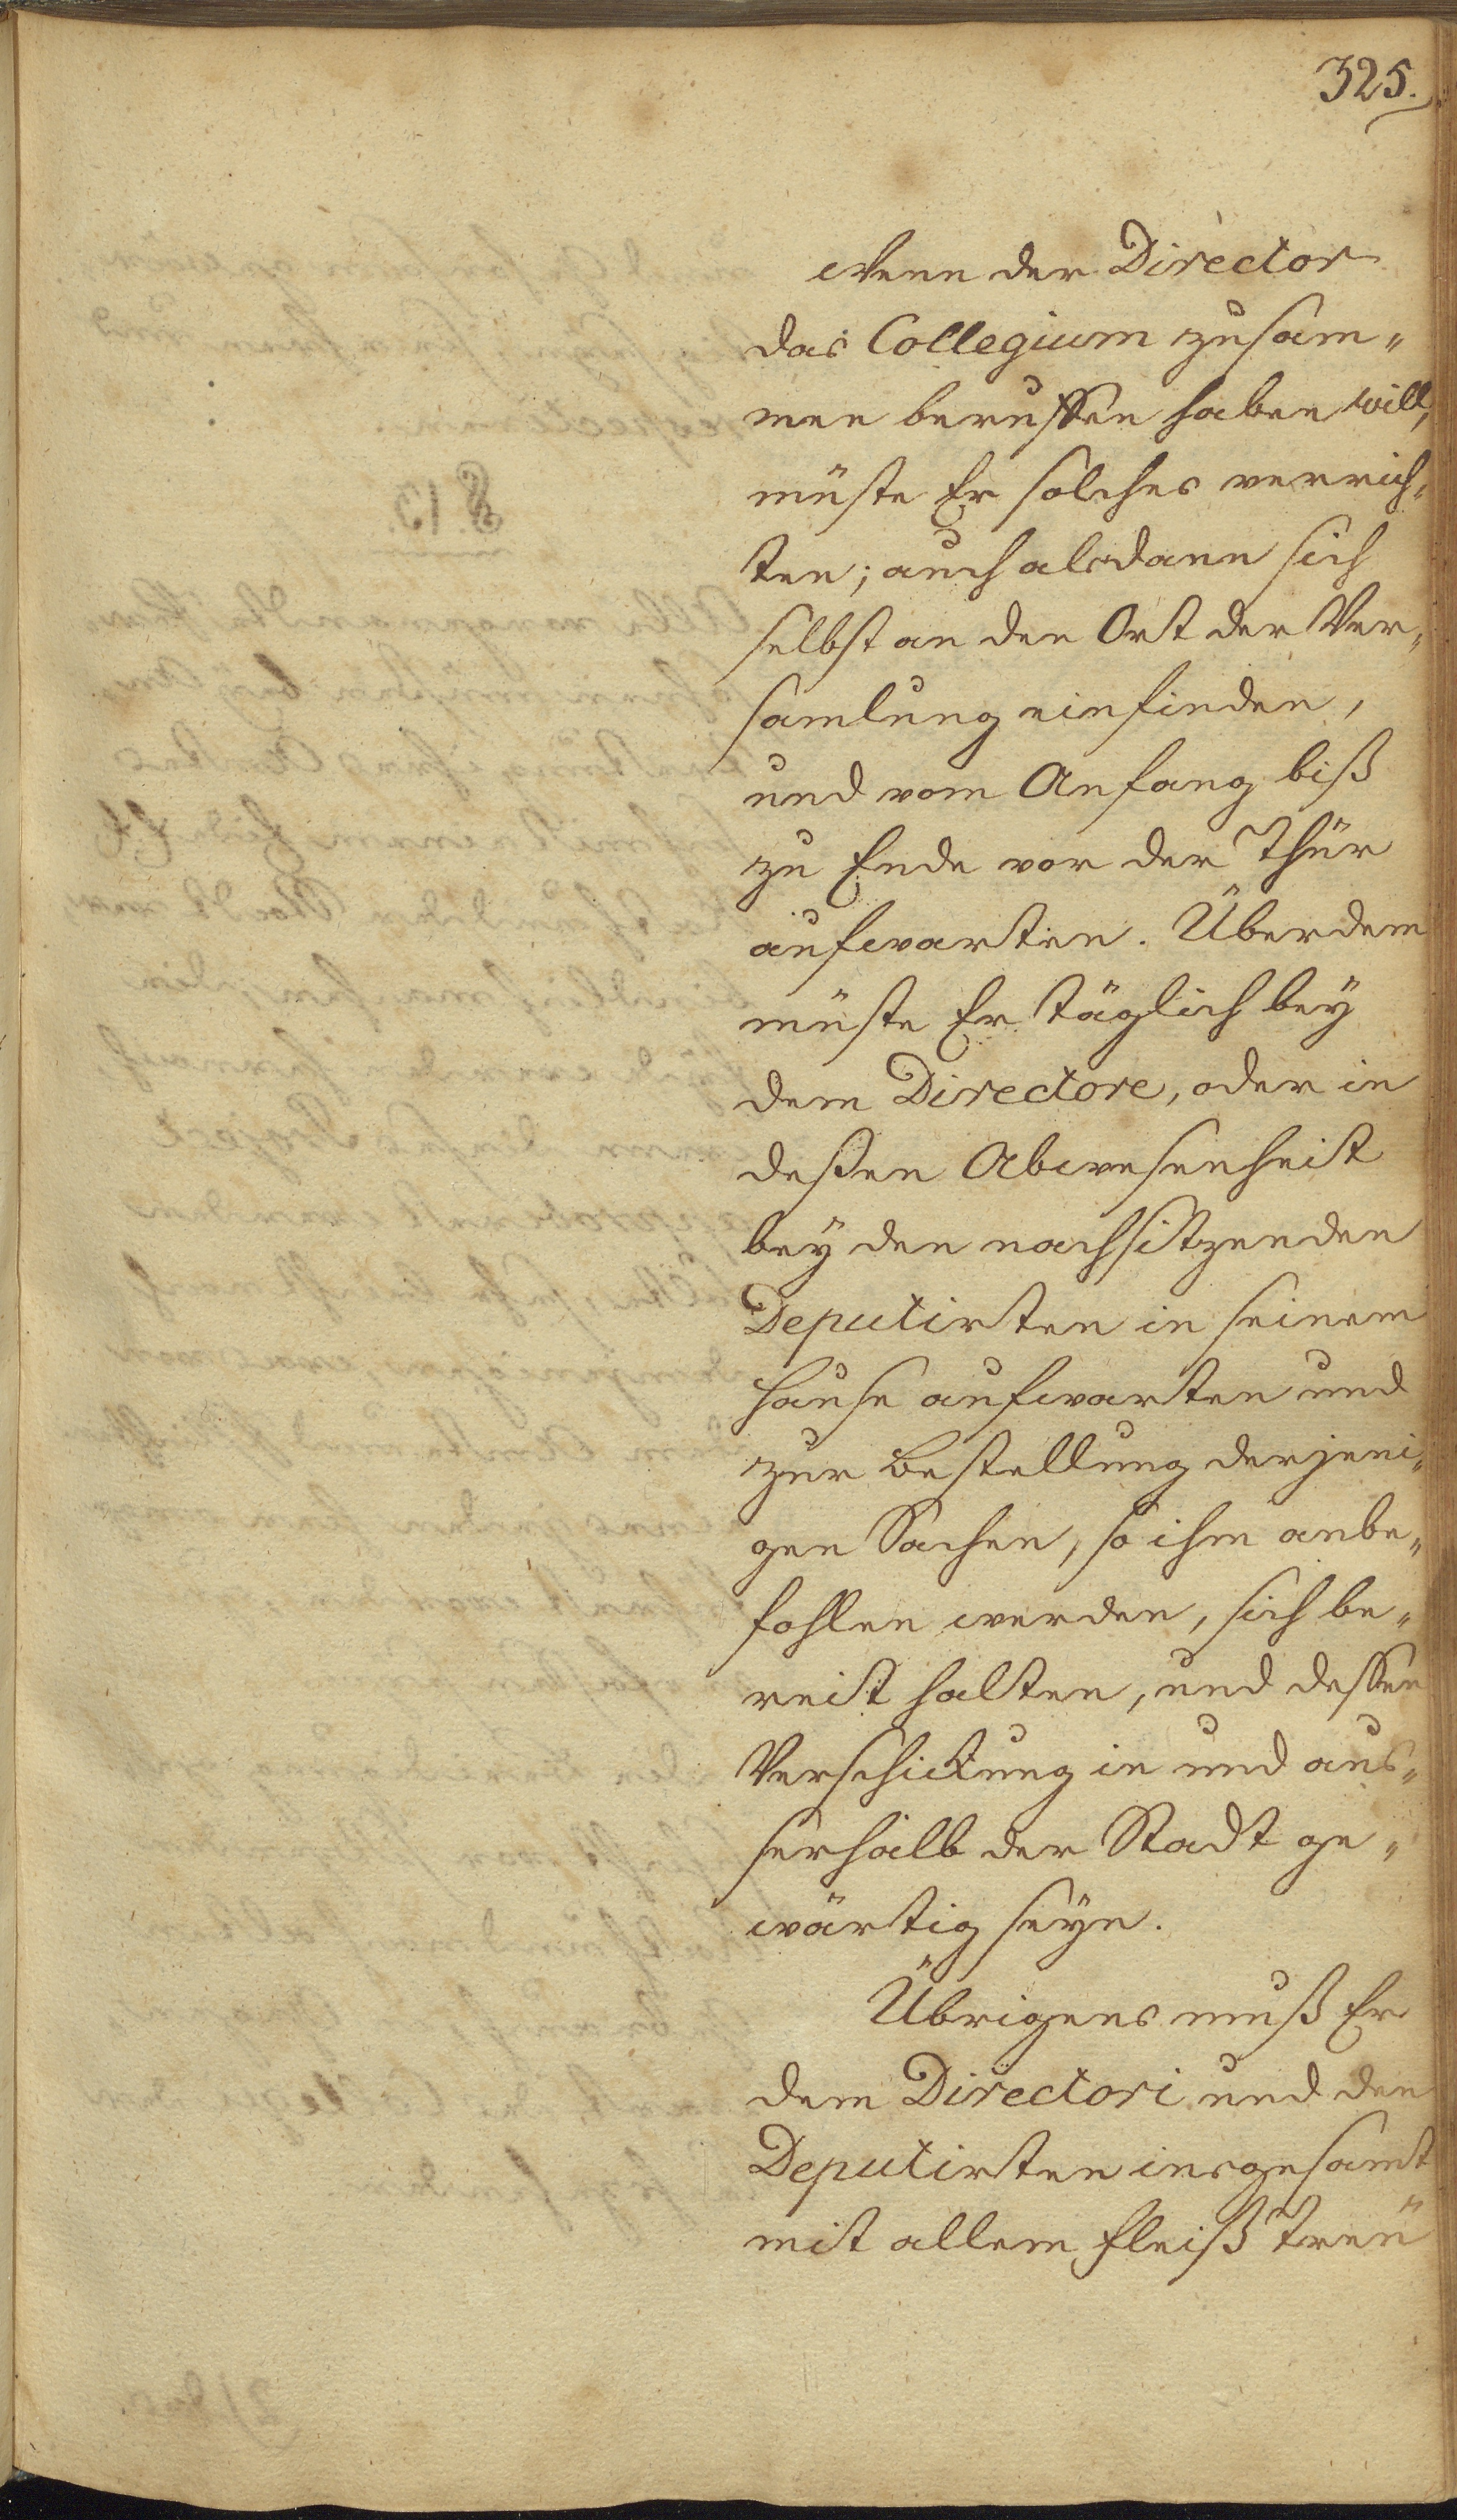 325.
Wenn der Director
das Collegium zusam„
men beruffen haben will,
müste Er solches verrich„
ten; auch alsdann sich
selbst an den Ort der Ver„
samlung einfinden,
und vom Anfang biß
zu Ende vor der Thür
aufwarten. Überdem
müste Er täglich bey
dem Directore, oder in
deßen Abwesenheit
bey den nachsitzenden
Deputirten in seinem
Hause aufwarten und
zur Bestellung derjeni„
gen Sachen, so ihm anbe„
fohlen werden, sich be„
reit halten, und dessen
Verschickung in und aus„
serhalb der Stadt ge„
wärtig seyn.
Übrigens muß Er
dem Directori und den
Deputirten insgesamt
mit allem Fleiß treu